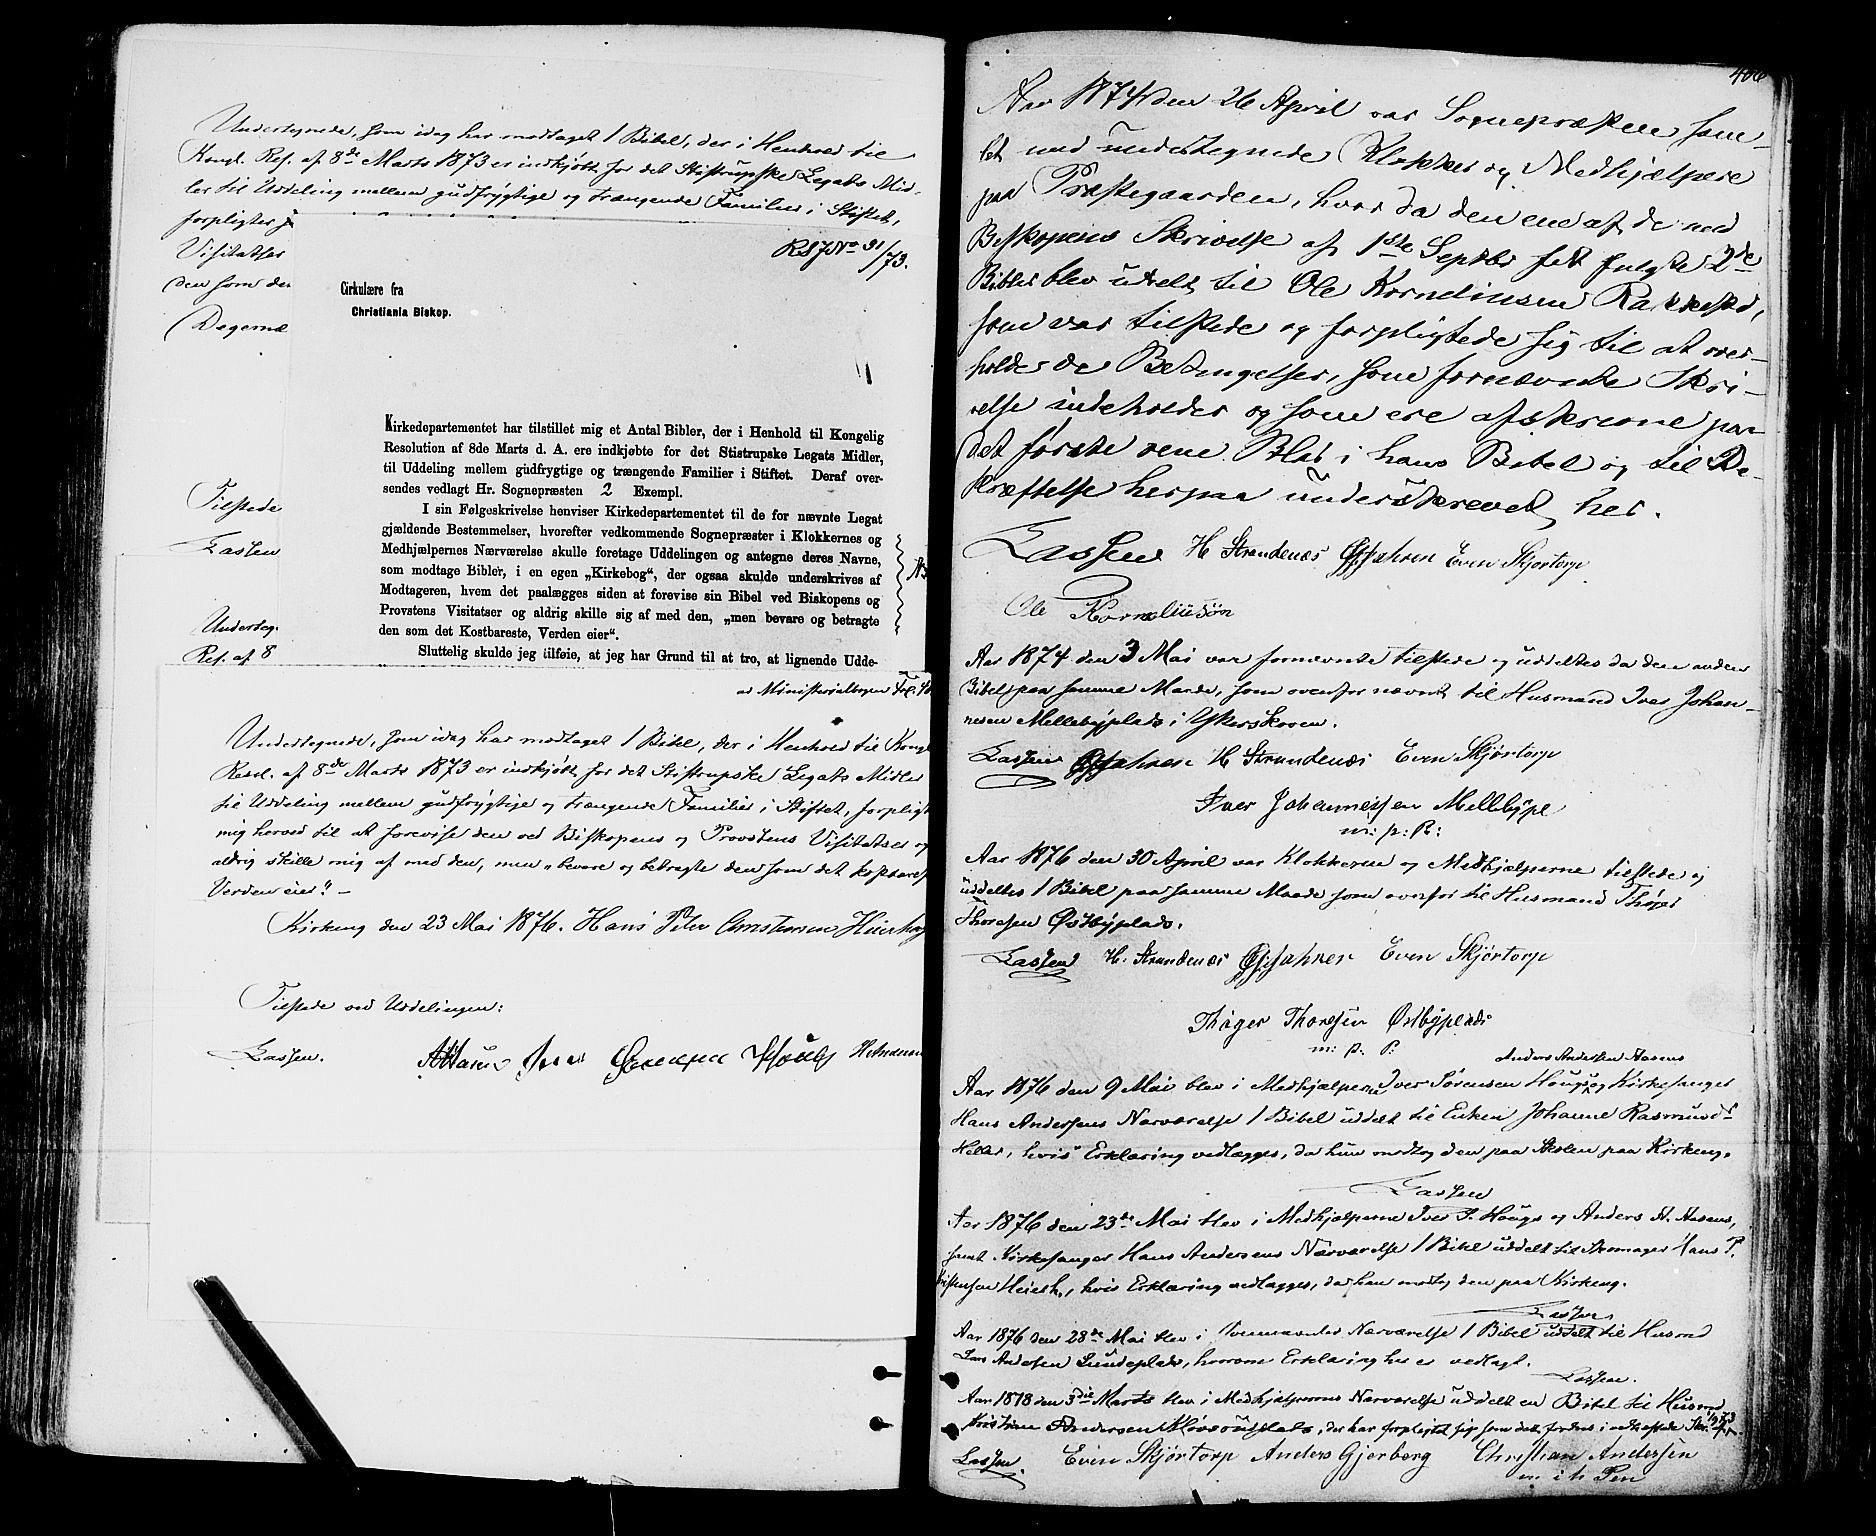 Undertegnede, som idag har modtaget 1 Bibel, der i Henhold til
Kongl. Res. af 8de Marts 1873 er indkjøbt for det Stistrupske Legats Mid-
ler til Uddeling mellem gudfrygtige og trængende Familier i Stiftet,
forpligter
Visitatser
den som det
Degernæ
RSJ No 31/73.
Cirkulære fra
Christiania Biskop.
Kirkedepartementet har tilstillet mig et Antal Bibler, der i Henhold til Kongelig
Resolution af 8de Marts d. A. ere indkjøbte for det Stistrupske Legats Midler,
til Uddeling mellem gudfrygtige og trængende Familier i Stiftet. Deraf over-
sendes vedlagt Hr. Sognepræsten 2 Exempl.
I sin Følgeskrivelse henviser Kirkedepartementet til de for nævnte Legat
gjældende Bestemmelser, hvorefter vedkommende Sognepræster i Klokkernes og
Medhjælpernes Nærværelse skulle foretage Uddelingen og antegne deres Navne,
som modtage Bibler, i en egen „Kirkebog“, der ogsaa skulde underskrives af
Modtageren, hvem det paalægges siden at forevise sin Bibel ved Biskopens og
Provstens Visitatser og aldrig skille sig af med den, „men bevare og betragte
den som det Kostbareste, Verden eier“.
Sluttelig skulde jeg tilføie, at jeg har Grund til at tro, at lignende Udde-
Tilstede
Lassen
Underteg.
Res. af 8
Ministerialbogen Fol. 40
Undertegnede, som idag har modtaget 1 Bibel, der i Henhold til Kongl
Resol. af 8de Marts 1873 er indkjøbt for det Stistrupske Legats Midler
til Uddeling mellem gudfrygtige og trængende Familier i Stiftet, forpligt
mig herved til at forevise den ved Biskopens og Provstens Visitatser og
aldrig skille mig af med den, men „bevare og betragte den som det kostbarest
Verden eier“. –
Kirkeng den 23 Mai 1876. Hans Peter
Tilstede ved Uddelingen:
Lassen.
406
Aar 1874 den 26 April var Sognepræsten sam-
let med undertegnede Klokker og Medhjælpere
paa Præstegaarden, hvor da den ene af de med
Biskopens Skrivelse af 1ste Septbr 1873 fulgte 2de
Bibler blev uddelt til Ole Korneliusen Rakkestad,
som var tilstede og forpligtede sig til at over-
holde de Betingelser, som fornævnte Skri-
velse indeholder og som ere afskrevne paa
det første rene Blad i hans Bibel og til Be-
kræftelse herpaa underskrevet her.
Lassen H Strandenæs Even Skjørtorp
Ole Korneliusøn
Aar 1874 den 3 Mai var fornævnte tilstede og uddeltes da den anden
Bibel paa samme Maade, som ovenfor nævnt til Husmand Iver Johan-
nesen Mellebyplads i Ykerskoven.
Lassen H Strandenæs Even Skjørtorp
Iver Johannessen Mellebypl
m: p: P:
Aar 1876 den 30 April var Klokkeren og Medhjælperne tilstede og
uddeltes 1 Bibel paa samme Maade som ovenfor til Husmand Thøger
Thoresen Østbyplads.
Lassen H. Strandenæs Even Skjørtorp
Thøger Thoresen Østbyplads
m: p. P:
Anders Andersen Aasens
Aar 1876 den 9 Mai blev i Medhjælperne Iver Sørensen Hougs og Kirkesanger
Hans Andersens Nærværelse 1 Bibel uddelt til Enken Johanne Rasmusd
Heller, hvis Erklæring vedlægges, da hun modtog den paa Skolen paa Kirkeng.
Lassen
Aar 1876 den 23de Mai blev i Medhjælperne Iver S. Hougs og Anders A. Aasens,
samt Kirkesanger Hans Andersens Nærværelse 1 Bibel uddelt til Skomager Hans P.
hvis Erklæring vedlægges, da han modtog den paa Kirkeng.
Lassen
Aar 1876 den 28de Mai blev i Nærværelse 1 Bibel uddelt til Husmd
Lars Andersen Lundeplads, hvorom Erklæring her er vedlagt.
Lassen.
Aar 1878 den 3die Marts blev i Medhjælpernes Nærværelse uddelt en Bibel til Husmd
Kristian Andersen der har forpligtet sig som det fordres i
Lassen. Even Skjørtorp Anders Gjerberg Christian Andersen
m i h Pen